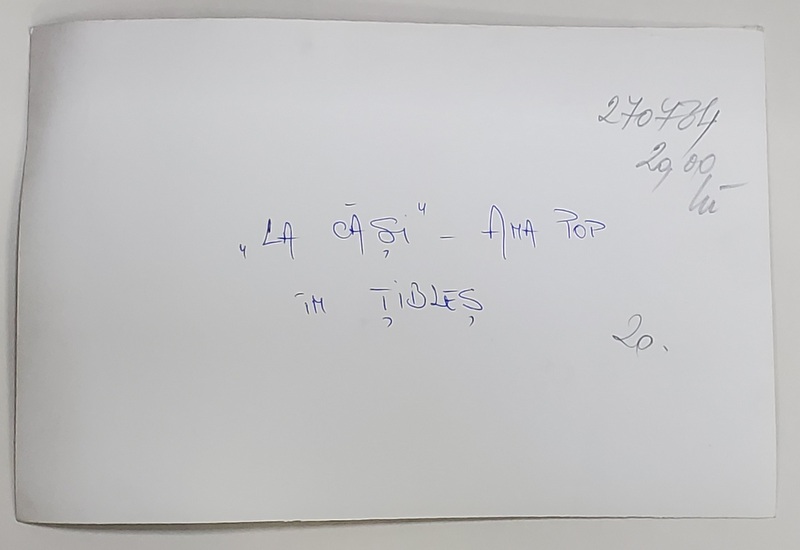 270784
20,00
lei
„LA CĂȘI" - ANA POP
ÎN ȚIBLEȘ
20.